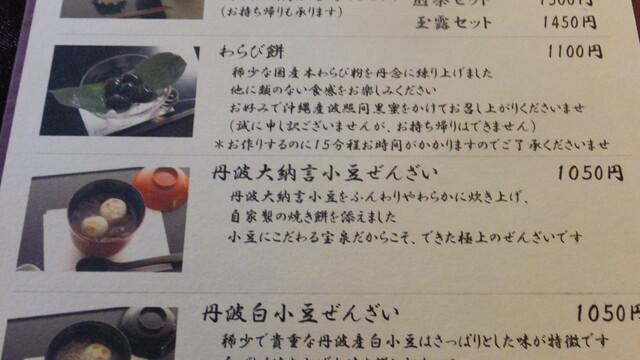 (お持ち帰りも承ります)
煎茶セット 1300円
玉露セット 1450円
わらび餅 1100円
稀少な国産本わらび粉を丹念に練り上げました
他に類のない食感をお楽しみください
お好みで沖縄産波照間黒蜜をかけてお召し上がりくださいませ
(誠に申し訳ございませんが、お持ち帰りはできません)
*お作りするのに15分程お時間がかかりますのでご了承くださいませ
丹波大納言小豆ぜんざい 1050円
丹波大納言小豆をふんわりやわらかに炊き上げ、
自家製の焼き餅を添えました
小豆にこだわる宝泉だからこそ、できた極上のぜんざいです
丹波白小豆ぜんざい 1050円
稀少で貴重な丹波産白小豆はさっぱりとした味が特徴です